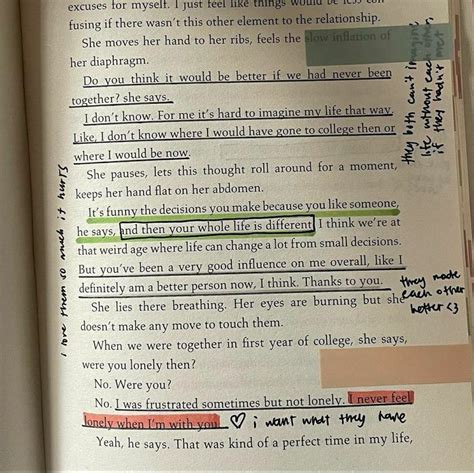 excuses for myself. I just feel like things would be less con-
fusing if there wasn't this other element to the relationship.
She moves her hand to her ribs, feels the slow inflation of
her diaphragm.
Do you think it would be better if we had never been
together? she says.
I don't know. For me it's hard to imagine my life that way.
Like, I don't know where I would have gone to college then or
where I would be now.
She pauses, lets this thought roll around for a moment,
keeps her hand flat on her abdomen.
It's funny the decisions you make because you like someone,
he says, and then your whole life is different. I think we're at
that weird age where life can change a lot from small decisions.
But you've been a very good influence on me overall, like I
definitely am a better person now, I think. Thanks to you.
She lies there breathing. Her eyes are burning but she
doesn't make any move to touch them.
When we were together in first year of college, she says,
were you lonely then?
No. Were you?
No. I was frustrated sometimes but not lonely. I never feel
lonely when I'm with you. ♡ i want what they have
Yeah, he says. That was kind of a perfect time in my life,
they both can't imagine
life without each other,
if they hadn't met
they made
each other
better <3
i love them so much it hurts